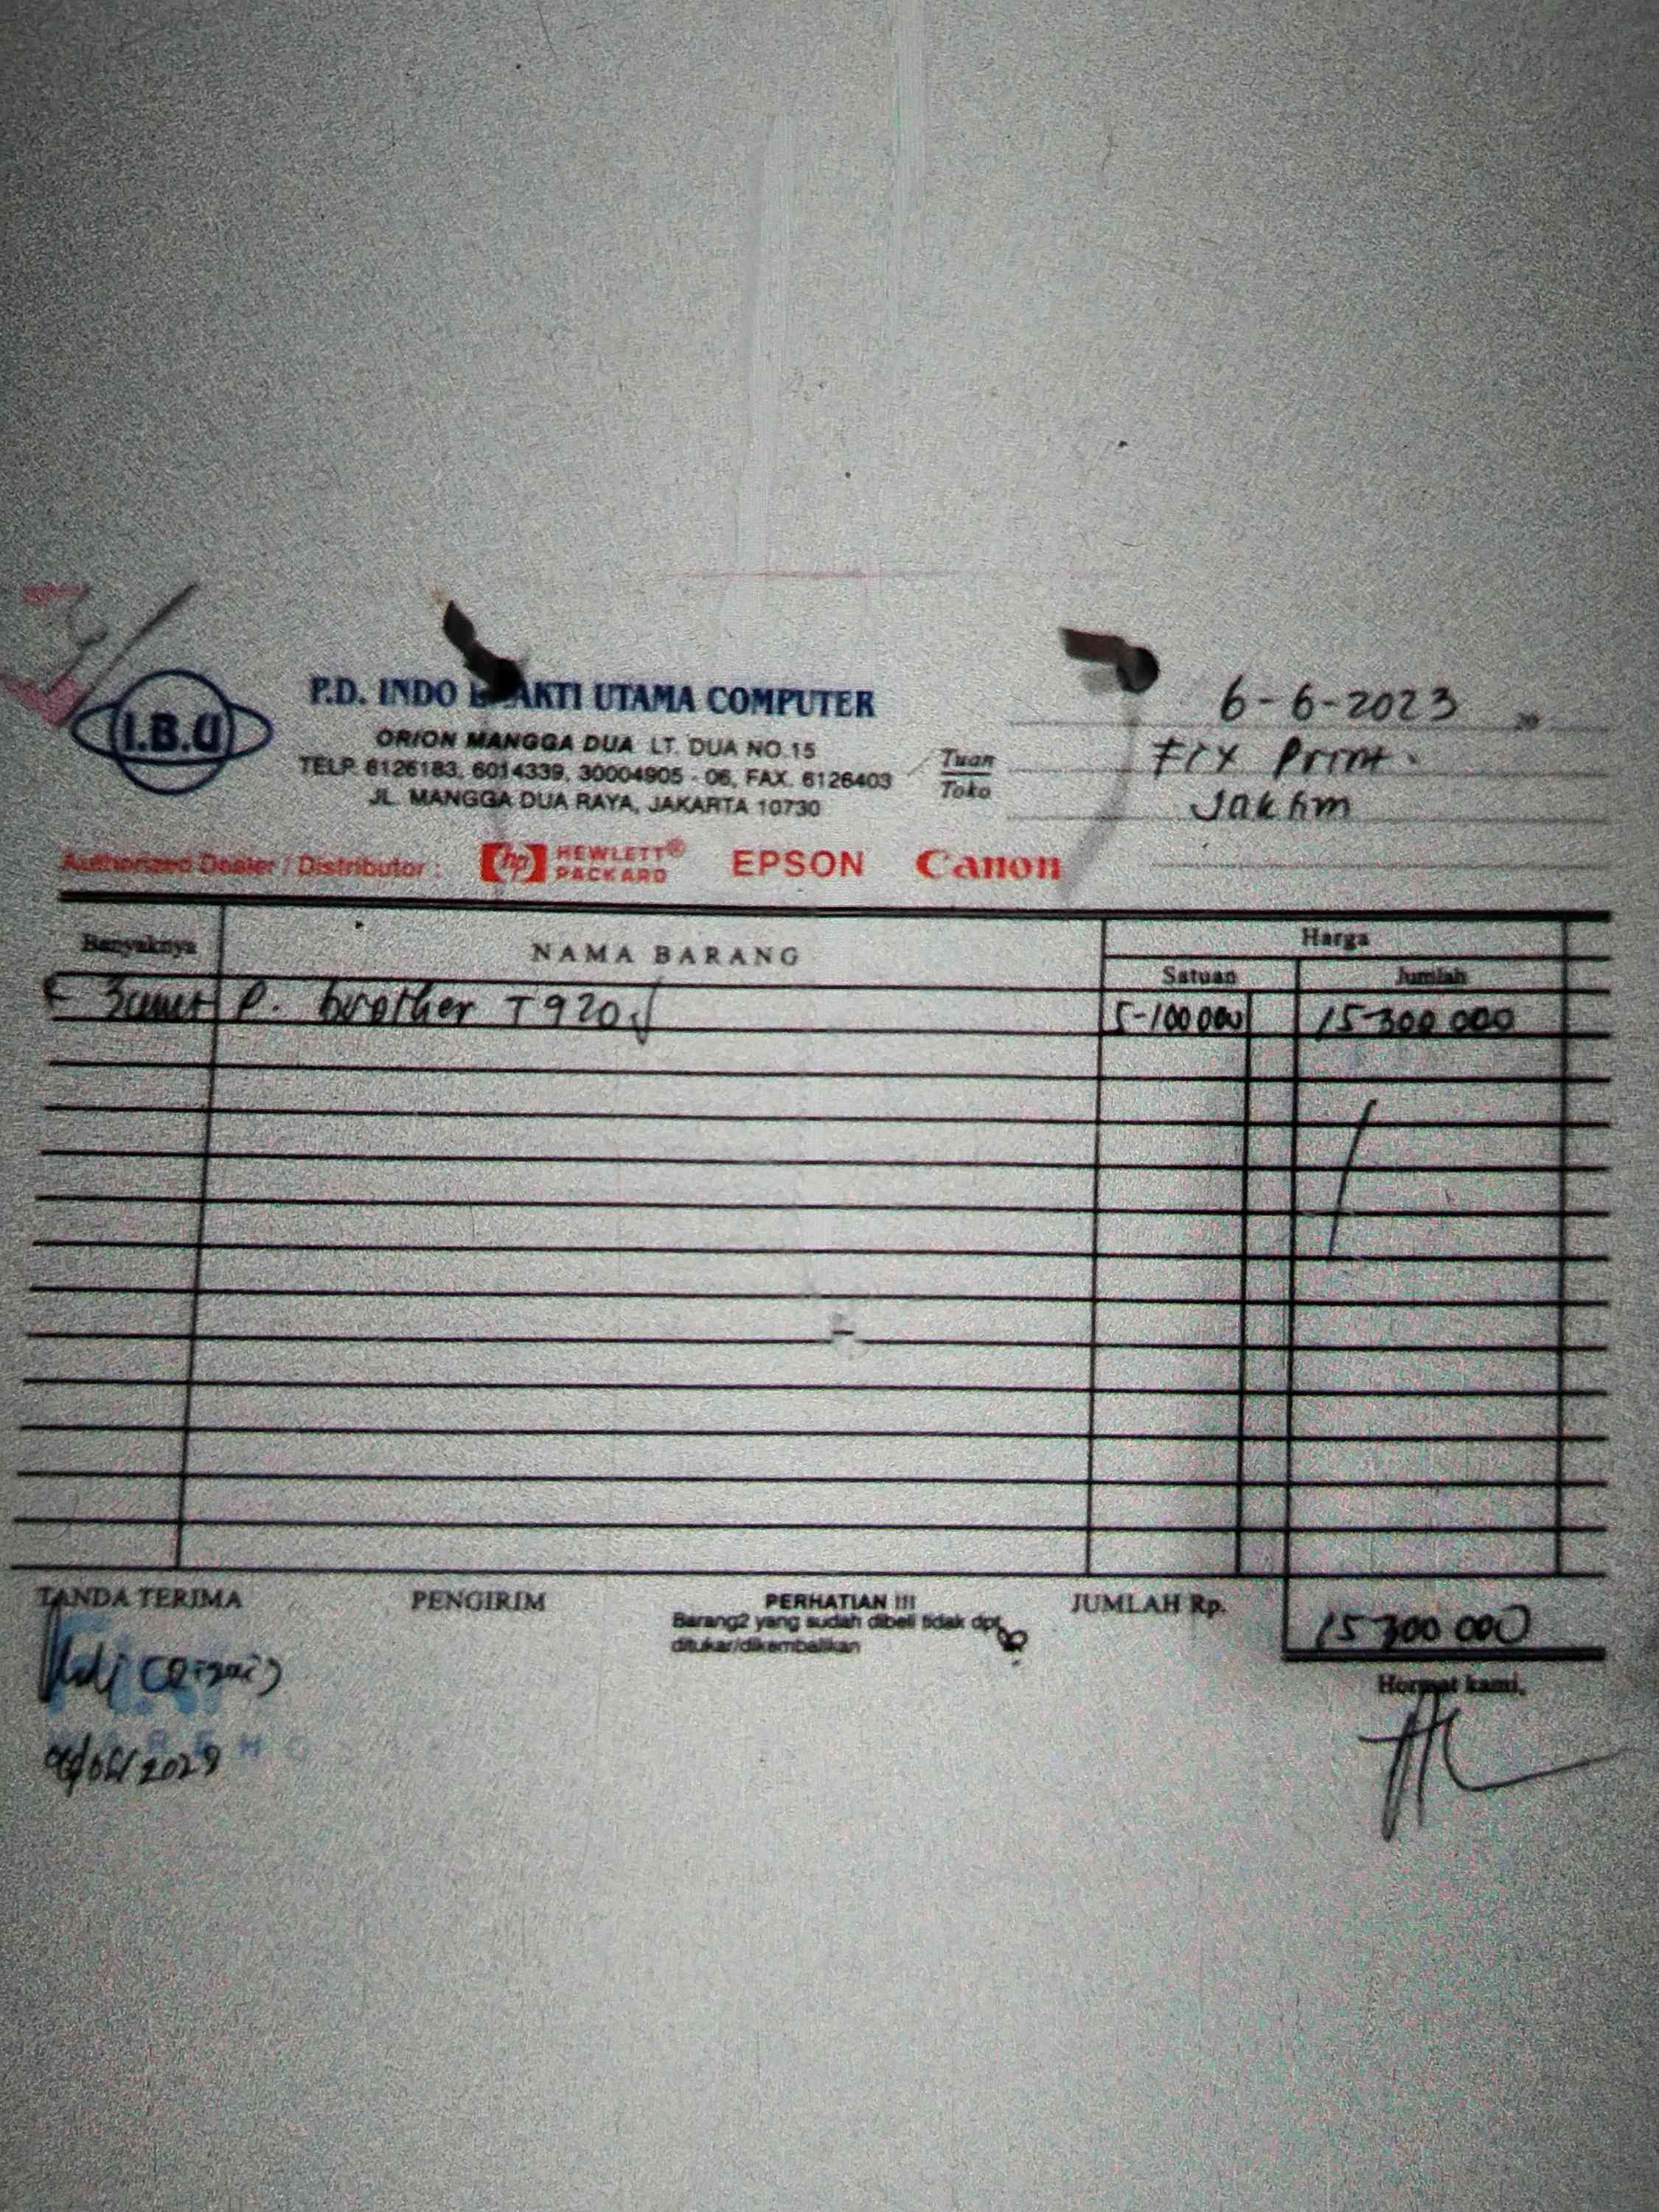 I.B.U
P.D. INDO BHAKTI UTAMA COMPUTER
ORION MANGGA DUA LT. DUA NO.15
TELP. 6126183, 6014339, 30004905 - 06, FAX. 6126403
JL. MANGGA DUA RAYA, JAKARTA 10730
6-6-2023 20
Tuan
Toko
Fix Print.
Jaktim
Authorized Dealer / Distributor : hp HEWLETT® PACKARD EPSON Canon
Banyaknya NAMA BARANG Harga
Satuan Jumlah
3 P. brother T920 5-100 000 15-300 000
TANDA TERIMA PENGIRIM PERHATIAN !!! JUMLAH Rp. 15 300 000
Barang2 yang sudah dibeli tidak dpt
ditukar/dikembalikan
Hormat kami,
06/06/2023